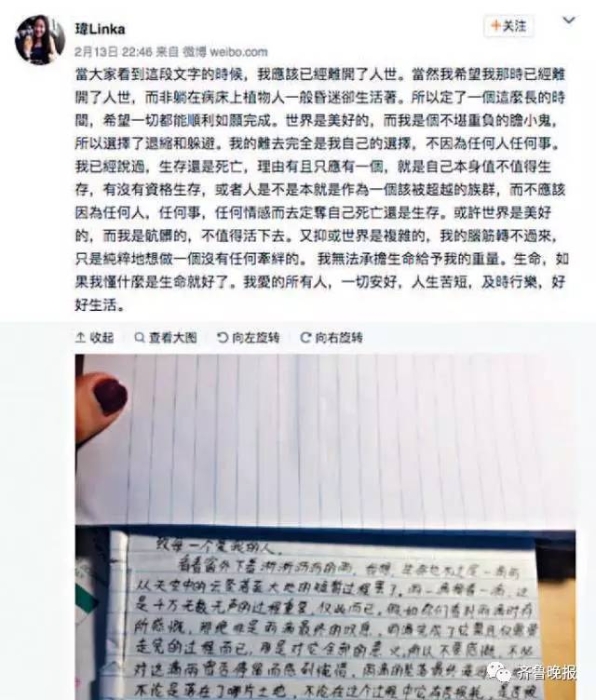 瑋Linka
+关注
2月13日 22:46 来自 微博 weibo.com
當大家看到這段文字的時候，我應該已經離開了人世。當然我希望我那時已經離
開了人世，而非躺在病床上植物人一般昏迷卻生活著。所以定了一個這麼長的時
間，希望一切都能順利如願完成。世界是美好的，而我是個不堪重負的瞻小鬼，
所以選擇了退縮和躲避。我的離去完全是我自己的選擇，不因為任何人任何事。
我已經說過，生存還是死亡，理由有且只應有一個，就是自己本身值不值得生
存，有沒有資格生存，或者人是不是本就是作為一個該被超越的族群，而不應該
因為任何人，任何事，任何情感而去定奪自己死亡還是生存。或許世界是美好
的，而我是骯髒的，不值得活下去。又抑或世界是複雜的，我的腦筋轉不過來，
只是純粹地想做一個沒有任何牽絆的。 我無法承擔生命給予我的重量。生命，如
果我懂什麼是生命就好了。我愛的所有人，一切安好，人生苦短，及時行樂，好
好生活。
收起 查看大图 向左旋转 向右旋转
致每一个爱我的人，
看着窗外下着淅淅沥沥的雨，
从天空中的云坠落至大地的
是千万无数无声的过程重复，仅此而已。
所感慨，
走完的过程而已，
对这滴雨
不论是落在了哪片土地，不论在这个过程中它
齐鲁晚报